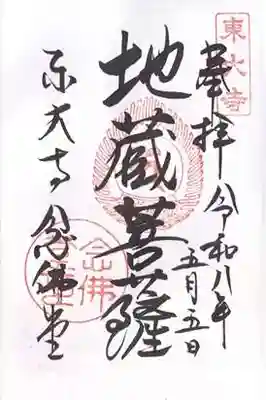 東大寺
奉拝 令和八年
五月五日
地蔵菩薩
念佛堂
東大寺念佛堂